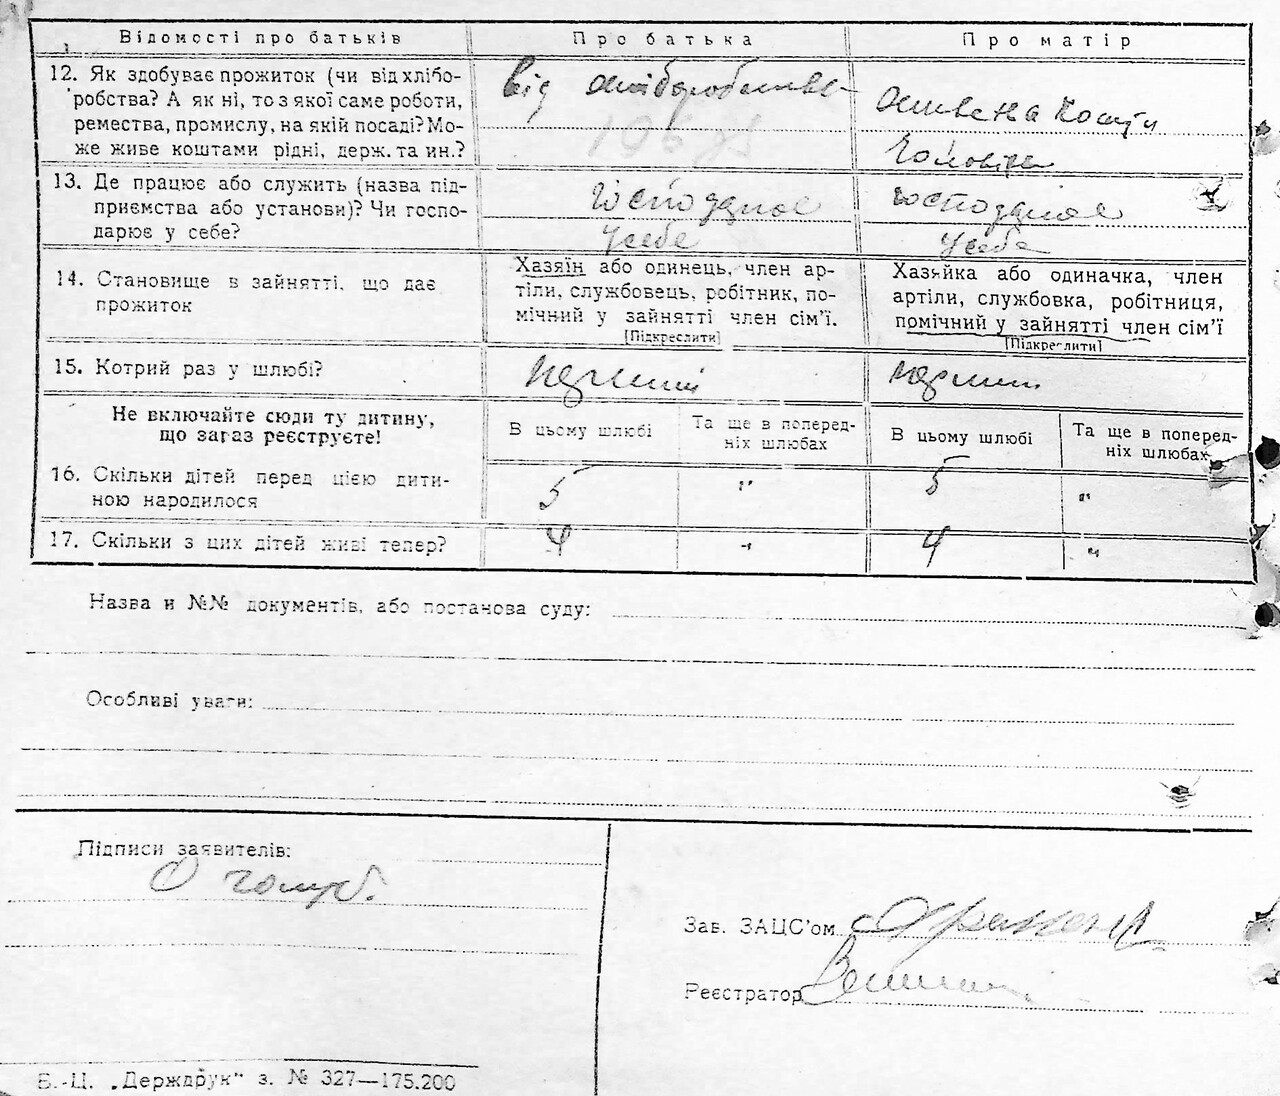 Відомості про батьків Про батька Про матір
12. Як здобуває прожиток (чи від хлібо-
робства? А як ні, то з якої саме роботи,
ремества, промислу, на якій посаді? Мо-
же живе коштами рідні, держ. та ин.?
від хліборобства
живе на кошти
чоловіка
13. Де працює або служить (назва під-
приємства або установи)? Чи госпо-
дарює у себе?
господарює
у себе
господарює
у себе
14. Становище в зайнятті, що дає
прожиток
Хазяїн або одинець, член ар-
тіли, службовець, робітник, по-
мічний у зайнятті член сім'ї.
[Підкреслити]
Хазяйка або одиначка, член
артіли, службовка, робітниця,
помічний у зайнятті член сім'ї
[Підкреслити]
15. Котрий раз у шлюбі? перший перший
Не включайте сюди ту дитину,
що зараз реєструєте!
В цьому шлюбі
Та ще в поперед-
ніх шлюбах
В цьому шлюбі
Та ще в поперед-
ніх шлюбах
16. Скільки дітей перед цією дити-
ною народилося
5 " 5 "
17. Скільки з цих дітей живі тепер? 4 " 4 "
Назва и №№ документів, або постанова суду:
Особливі уваги:
Підписи заявителів:
Зав. ЗАЦС'ом
Реєстратор
Б.-Ц. „Держдрук" з. № 327—175.200